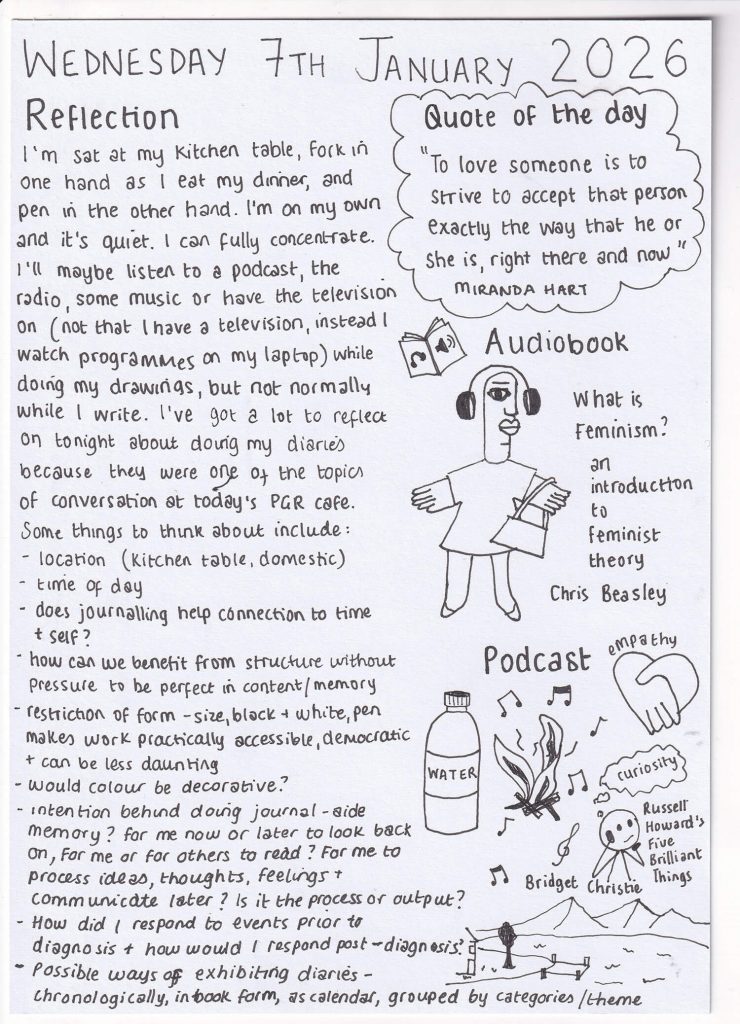 WEDNESDAY 7TH JANUARY 2026
Reflection
I'm sat at my kitchen table, fork in
one hand as I eat my dinner, and
pen in the other hand. I'm on my own
and it's quiet. I can fully concentrate.
I'll maybe listen to a podcast, the
radio, some music or have the television
on (not that I have a television, instead I
watch programmes on my laptop) while
doing my drawings, but not normally
while I write. I've got a lot to reflect
on tonight about doing my diaries
because they were one of the topics
of conversation at today's PGR cafe.
Some things to think about include:
- location (kitchen table, domestic)
- time of day
- does journalling help connection to time
+ self?
- how can we benefit from structure without
pressure to be perfect in content/memory
- restriction of form - size, black + white, pen
makes work practically accessible, democratic
+ can be less daunting
- would colour be decorative?
- intention behind doing journal - aide
memory? for me now or later to look back
on, for me or for others to read? For me to
process ideas, thoughts, feelings +
communicate later? Is it the process or output?
- How did I respond to events prior to
diagnosis + how would I respond post-diagnosis?
- Possible ways of exhibiting diaries -
chronologically, in book form, as calendar, grouped by categories/theme
Quote of the day
"To love someone is to
strive to accept that person
exactly the way that he or
she is, right there and now"
MIRANDA HART
Audiobook
What is
Feminism?
an
introduction
to
feminist
theory
Chris Beasley
Podcast
empathy
WATER
curiosity
Russell
Howard's
Five
Brilliant
Things
Bridget Christie